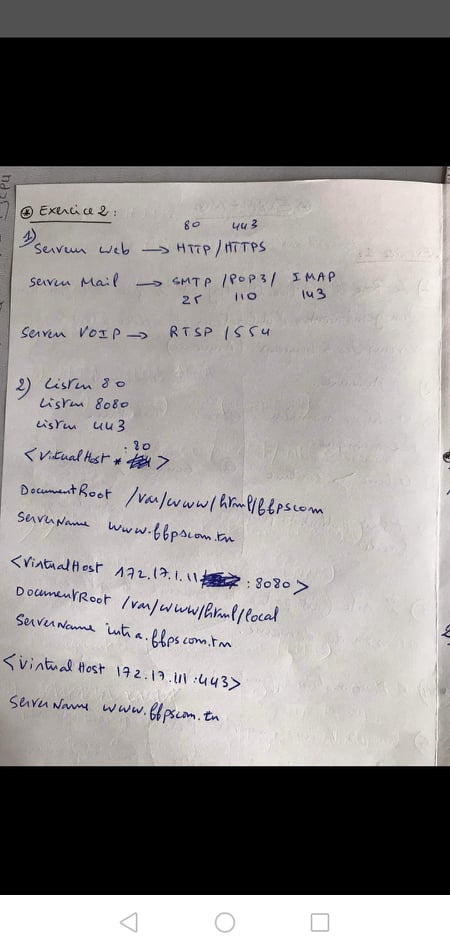 ⊛ Exercice 2 :
80 443
1) Serveur Web → HTTP / HTTPS
Serveur Mail → SMTP / POP3 / IMAP
25 110 143
Serveur VOIP → RTSP / 554
2) Listen 80
Listen 8080
Listen 443
<VirtualHost *:80>
DocumentRoot /var/www/html/ffpscom
ServerName www.ffpscom.tn
<VirtualHost 172.17.1.11 :8080>
DocumentRoot /var/www/html/local
ServerName intra.ffpscom.tn
<VirtualHost 172.17.111:443>
ServerName www.ffpscom.tn